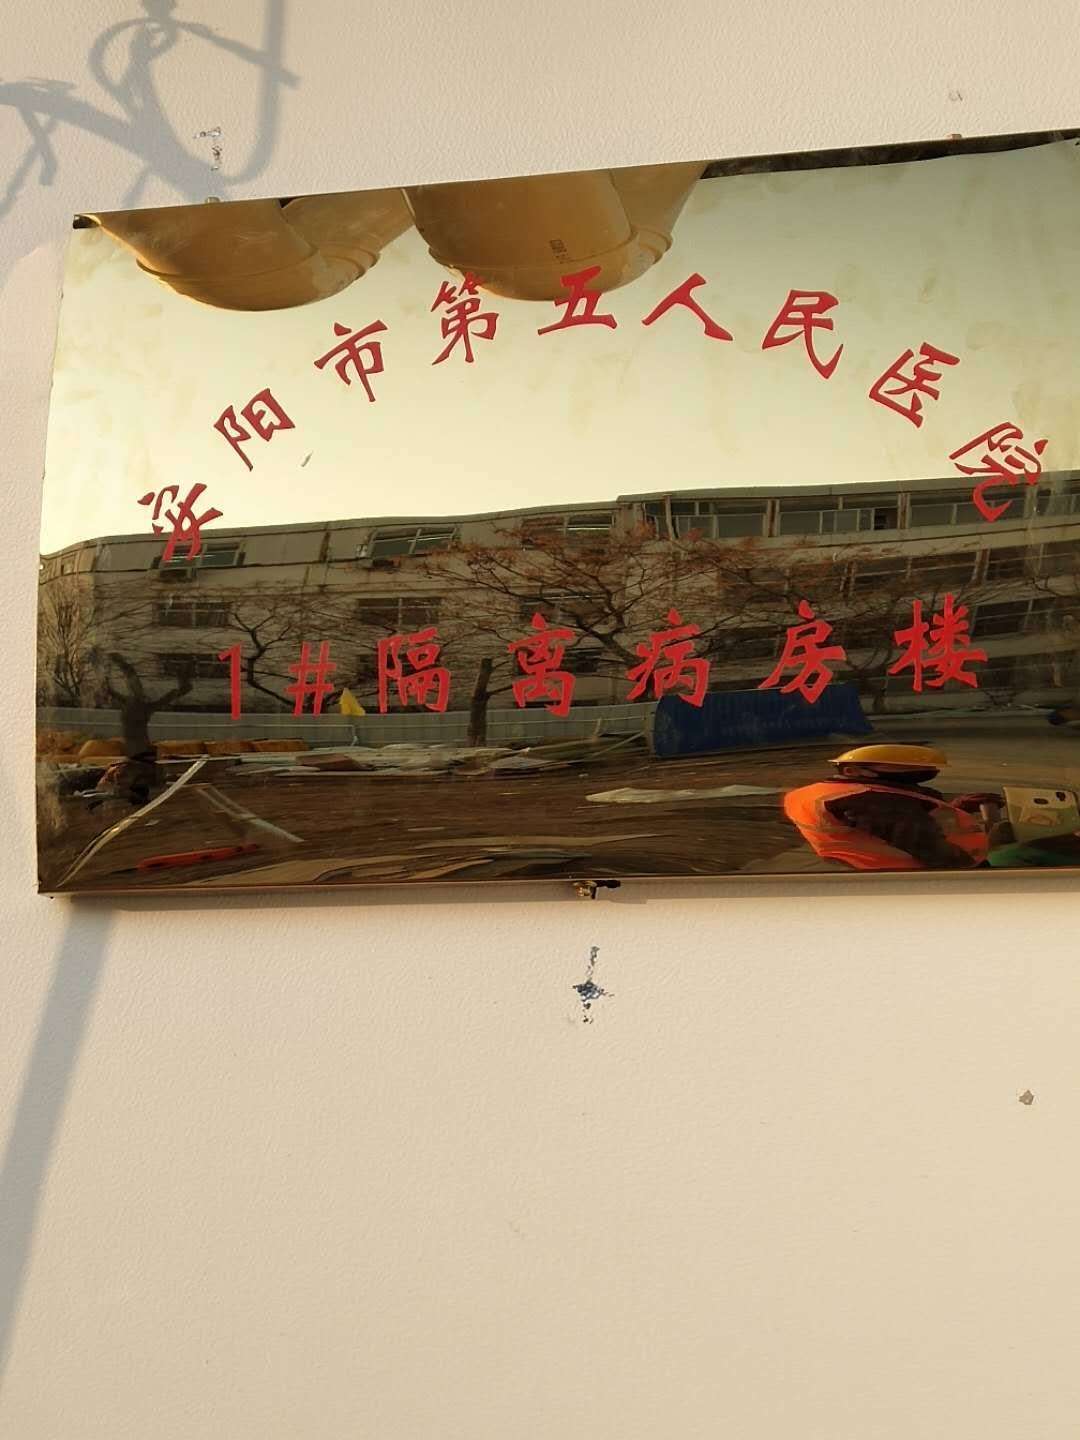 安阳市第五人民医院
1#隔离病房楼